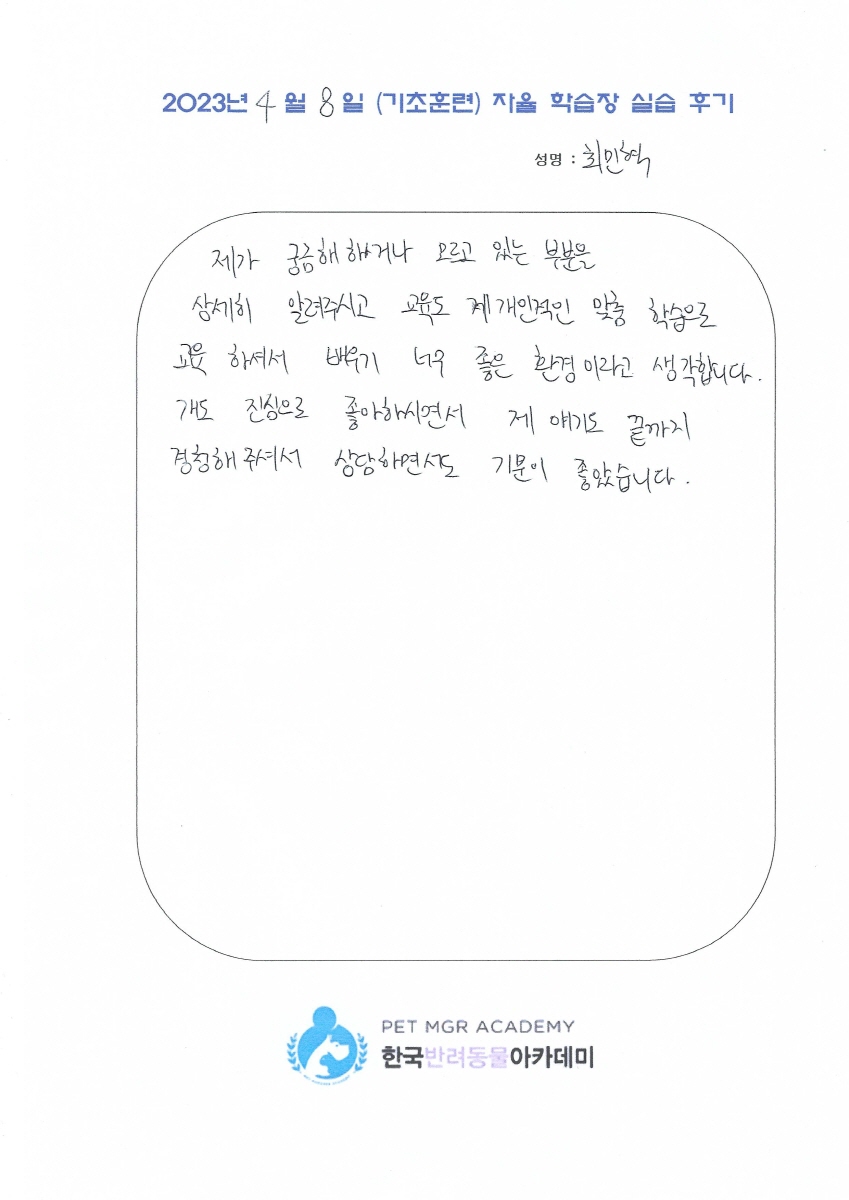 2023년 4월 8일 (기초훈련) 자율 학습장 실습 후기
성명 : 최민혁
제가 궁금해 하거나 모르고 있는 부분을
상세히 알려주시고 교육도 제 개인적인 맞춤 학습으로
교육 하셔서 배우기 너무 좋은 환경이라고 생각합니다.
개도 진심으로 좋아하시면서 제 얘기도 끝까지
경청해 주셔서 상담하면서도 기분이 좋았습니다.
PET MGR ACADEMY
한국반려동물아카데미